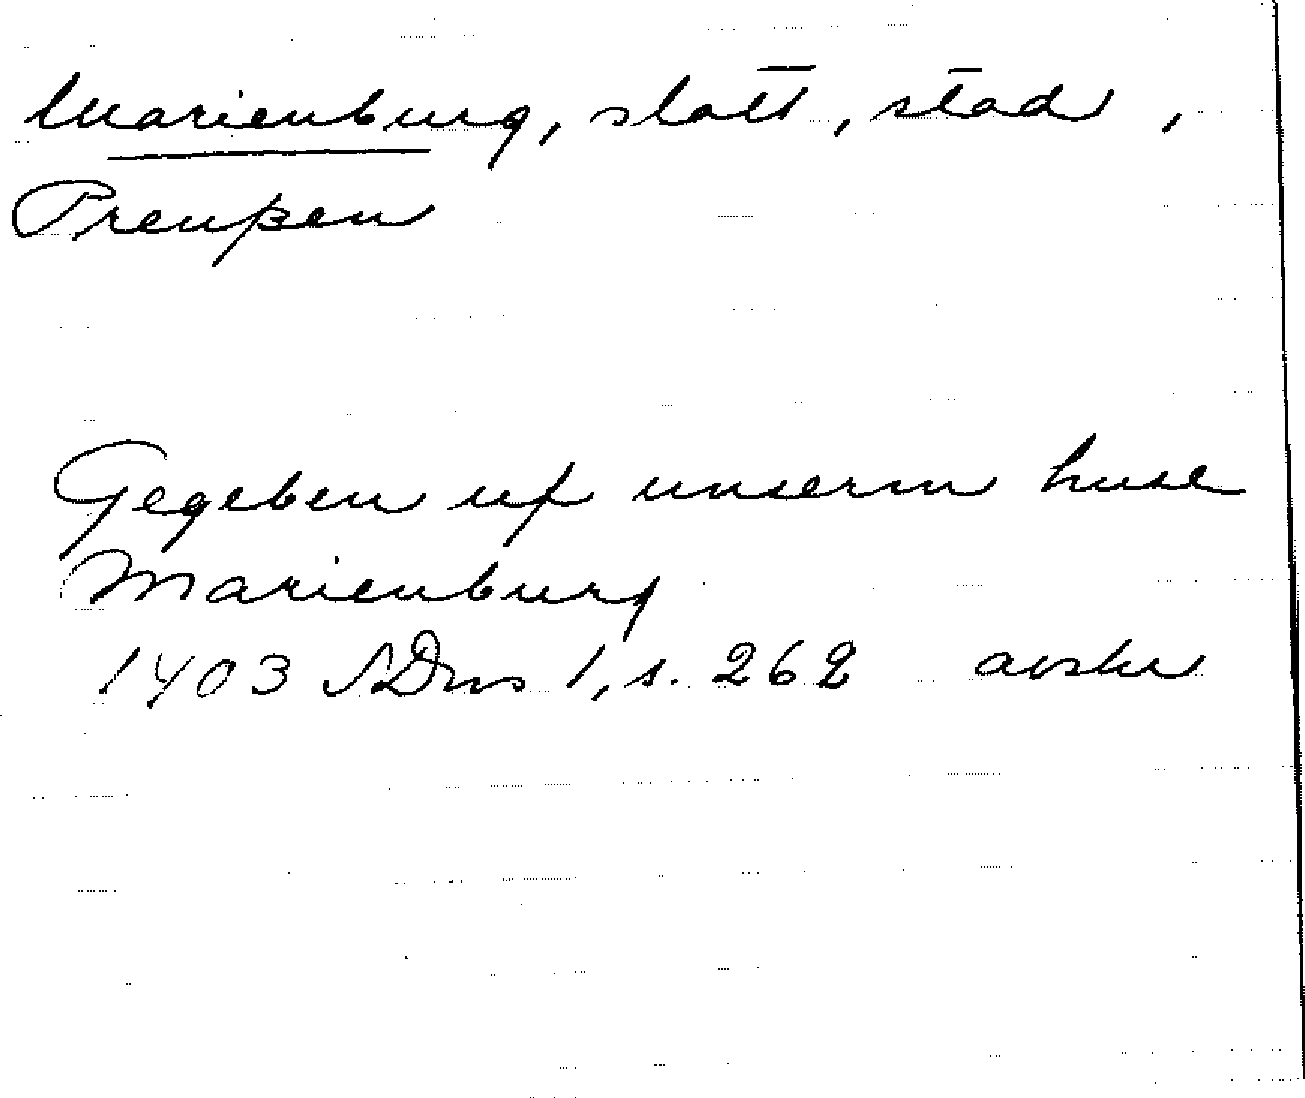 Marienburg, slott, stad,
Preußen
Gegeben uf unserm huse
Marienburg
1403 SDns 1, s. 262 avskr